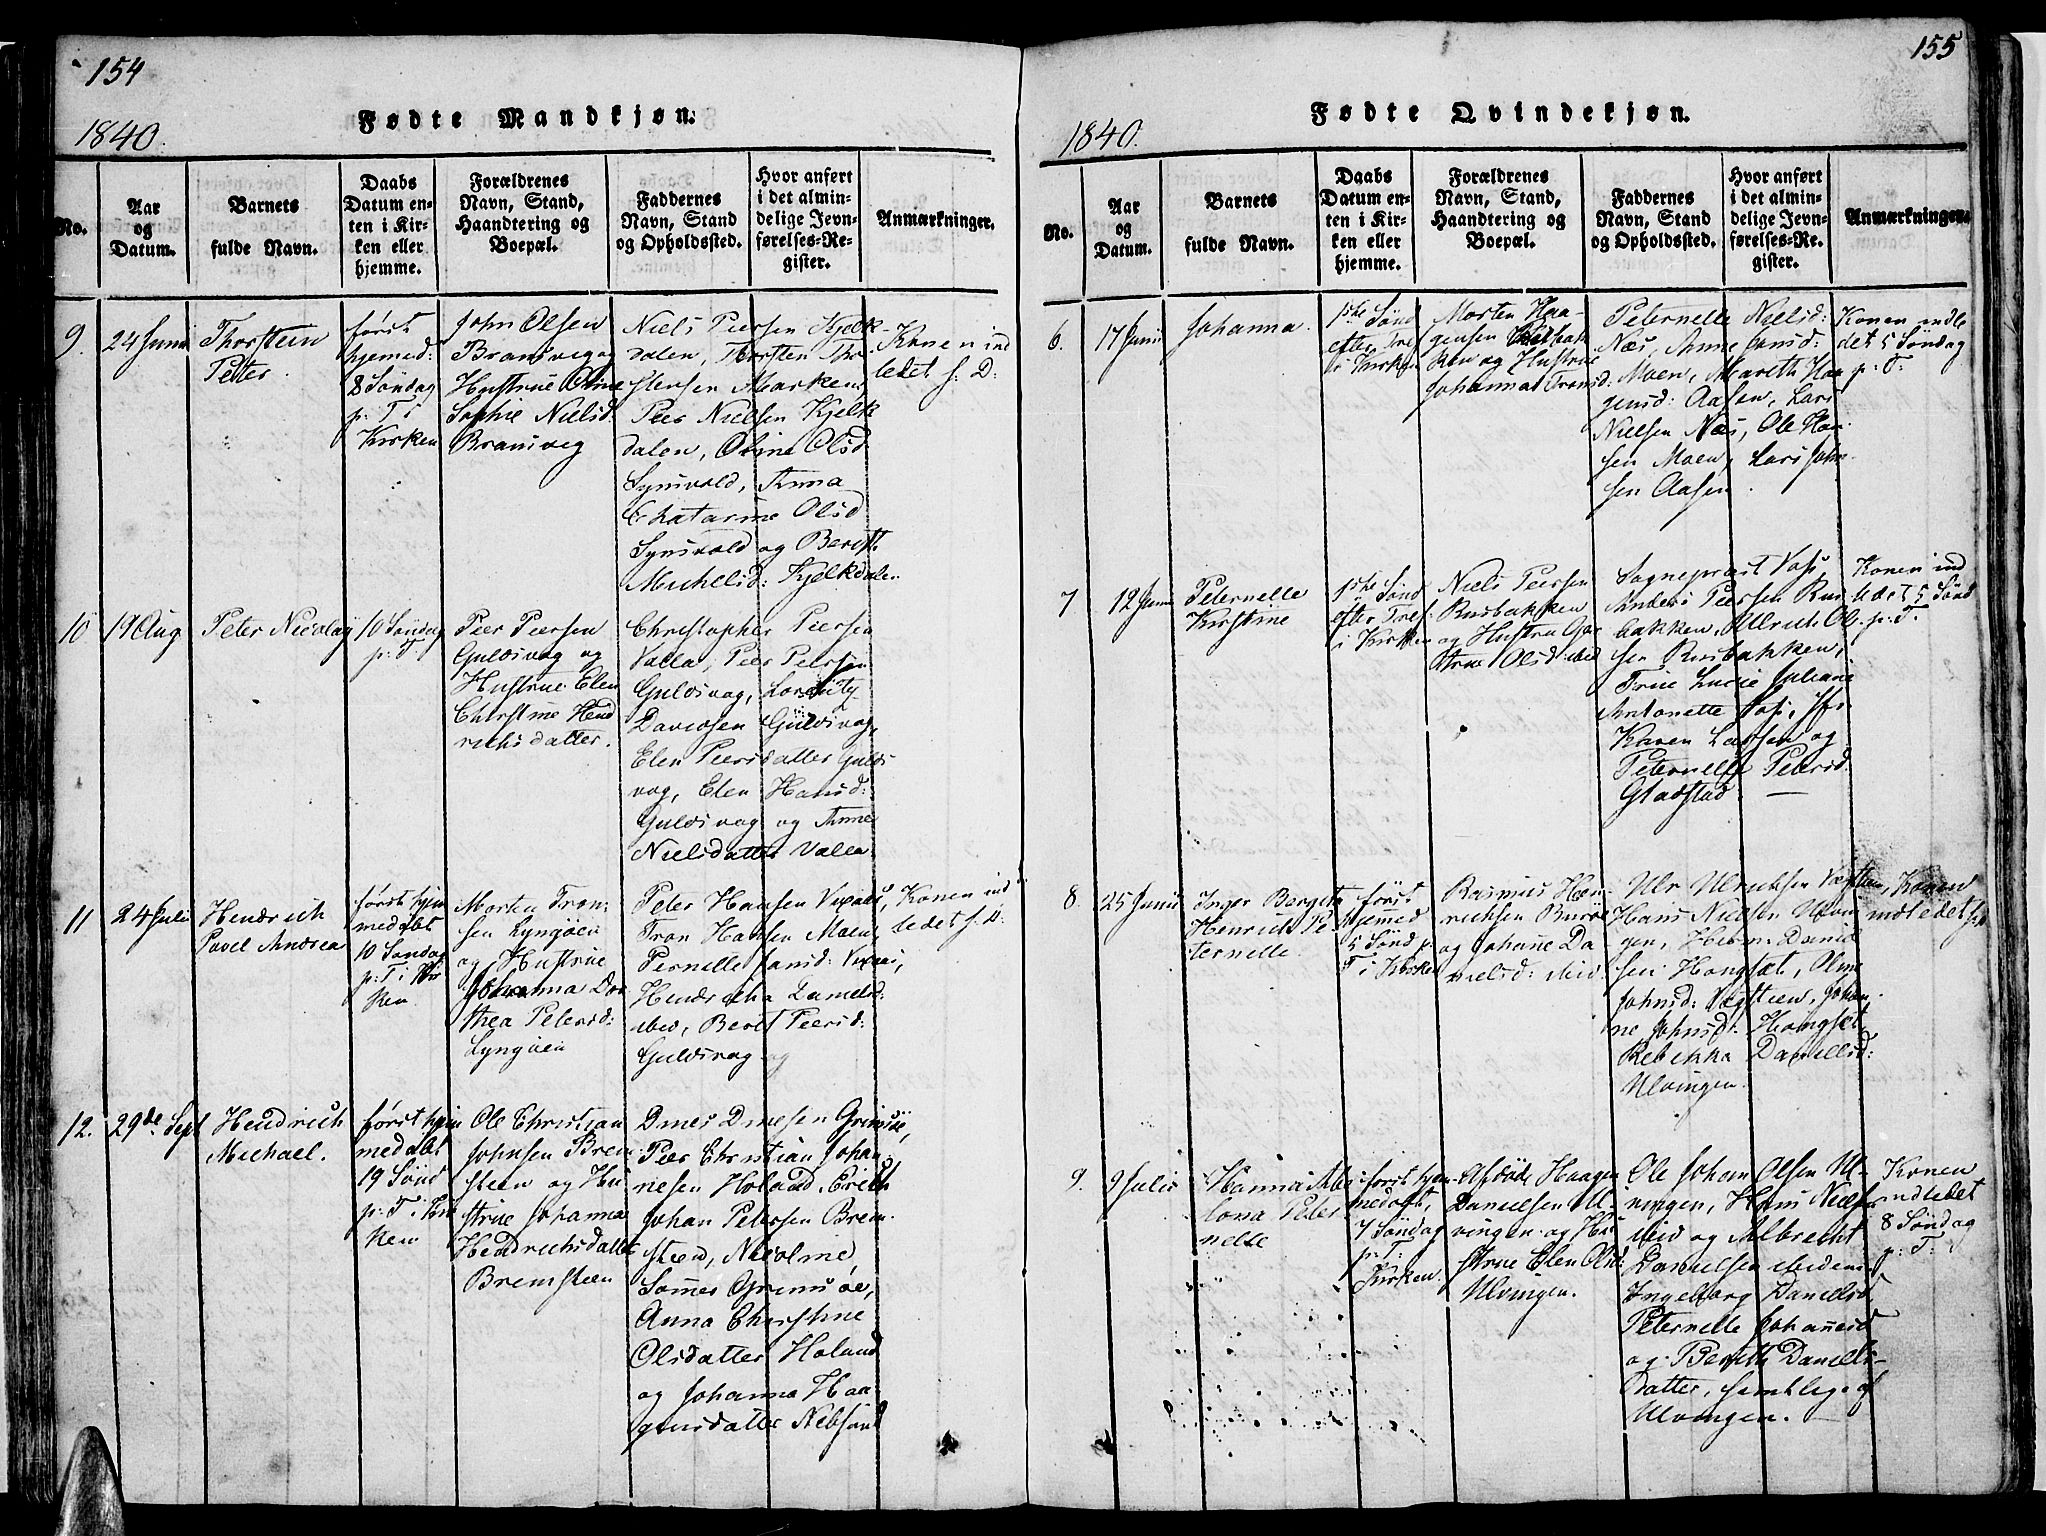 154
1840.
Fødte Mandkjøn.
No.
Aar
og
Datum.
Barnets
fulde Navn.
Daabs
Datum en-
ten i Kir-
ken eller
hjemme.
Forældrenes
Navn, Stand,
Haandtering og
Boepæl.
Faddernes
Navn, Stand
og Opholdssted.
Hvor anført
i det almin-
delige Jevn-
førelses-Re-
gister.
Anmærkninger.
9.
24 Juni
Thorsteen
Peter.
først
hjemed:
8 Søndag
p: T i
Kirken
John Olsen
Bransvig og
Hustrue Oline
Sophie Nielsd:
Bransvig
Niels Peersen Kjelk-
dalen, Thorsten Tho-
stensen Marken,
Peer Nielsen Kjelk
dalen, Oline Olsd
Synsvold, Anna
Chatarine Olsd
Synsvold og Bereth
Michelsd: Kjelkdalen
Konen ind
ledet s: D:
10
19 Aug
Peter Nicolay
10 Søndag
p: T.
Peer Peersen
Guldsvog og
Hustrue Elen
Christine Hend
richsdatter.
Christopher Peersen
Valla, Peer Peersen
Guldsvog,
Davidsen Guldsvog,
Elen Peersdatter Gulds-
vog, Elen Hansd:
Guldsvog og Anne
Nielsdatter Valla.
11
24 Juli
Hendrich
Povel Andrea
først hjem
medøbt
10 Søndag
p: T i Kir
ken
Morten Tron-
sen Lyngøen
og Hustrue
Johanna Do
thea Petersd:
Lyngøen
Peter Hansen
Tron Hansen Moen,
Pernelle Jansd:
Hendricha Danielsd:
ibid, Beret Peersd:
Guldsvog og
Konen ind
ledet s. D.
12.
29de Sept
Hendrich
Michael.
først hjem
medøbt
19 Sønd
p: T i Kir
ken
Ole Christian
Johnsen Brem
steen og Hu
strue Johanna
Hendrichsdatter
Bremsteen
Dines Dinesen Grimsøe,
Peer Christian Johan
nesen Holand, Erich
Johan Petersen Brem
steen, Nicoline
Grimsøe,
Anna Christine
Olsdatter Holand
og Johanna Haa
gensdatter
155
1840.
Fødte Qvindekjøn.
No.
Aar
og
Datum.
Barnets
fulde Navn.
Daabs
Datum en-
ten i Kir-
ken eller
hjemme.
Forældrenes
Navn, Stand,
Haandtering og
Boepæl.
Faddernes
Navn, Stand
og Opholdssted.
Hvor anført
i det almin-
delige Jevn-
førelses-Re-
gister.
Anmærkninger.
6.
17 Junii
Johanna.
1ste Sønd
efter Tref
i Kirken
Morten Haa-
gensen
og Hustrue
Johanna Tronsd:
Peternelle Nielsd:
Næs, Anne Jensd:
Moen, Mareth Haa
gensd: Aasen, Lars
Nielsen Næs, Ole Han-
sen Moen, Lars John-
sen Aasen.
Konen indle
det 5 Søndag
p: T:
7
12 Junii
Peternelle
Kirstine
1ste Sønd
efter Tref:
i Kirken
Niels Peersen
Rusbakken
og Hustru
Olsd: ibid
Sognepræst Vos,
Anders Peersen Rus
bakken, Ulrich Ol-
sen Rusbakken,
Frue Lucie Juliane
Antonette Vos, Jfr.
Karen Lassen og
Peternelle Petersd:
Gladstad. —
Konen ind
ledet 5 Sønd
p: T.
8.
25 Junii
Inger Bergitte
Henrich Pe
ternelle.
først
Hjemmed
5 Sønd p:
T i Kirken
Rasmus Hen-
richsen Burøe
og Johane Da
nielsd: ibid
Ulr Ulrichsen Vægsteen,
Hans Nielsen Ulvin
gen, Daniel
sen Hongsæt, Oline
Johnsd: Vægsteen, Johan,
ne Johnsd: Hongset,
Rebekka Danielsd:
Ulvingen.
Konen
indledet s: D
9.
9 Julii
Hanna
Peter
nelle
først hjem
medøbt,
7 Søndag
p: T:
Kirken.
Afdøde Haagen
Danielsen Ul-
vingen og Hu
strue Elen Olsd:
Ulvingen.
Ole Johan Olsen Ul-
vingen, Hans Nielsen
ibid og Albrecht
Danielsen ibidem
Ingeborg Danielsd,
Peternelle Johanesd
og Bereth Daniels-
datter, samtlige af
Ulvingen. —
Konen
indledet
8 Søndag
p: T: